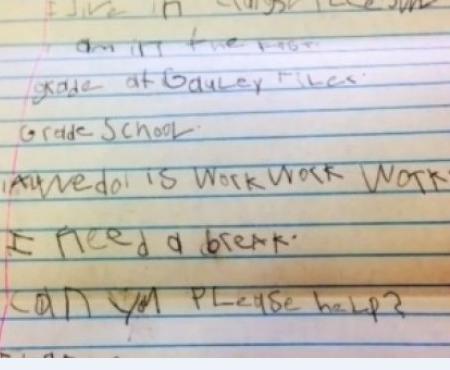 I live in
am in the
grade at Gauley
Grade School.
All we do is Work Work Work.
I need a break.
can you PLease heLp?